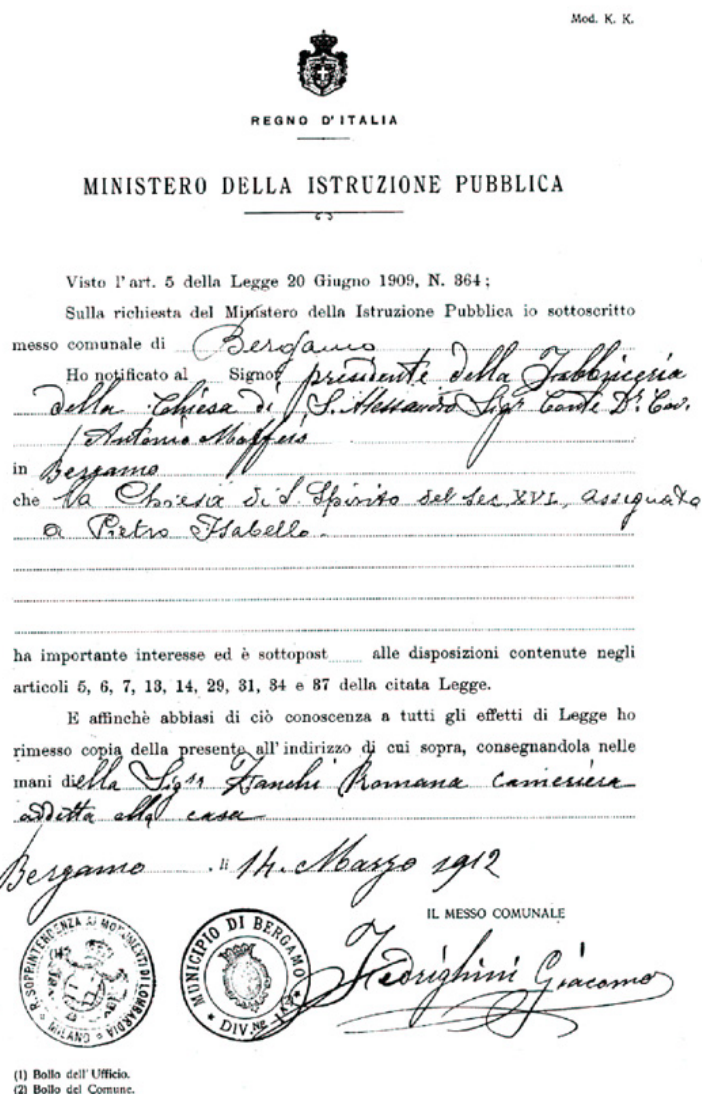 Mod. K. K.
REGNO D'ITALIA
MINISTERO DELLA ISTRUZIONE PUBBLICA
Visto l'art. 5 della Legge 20 Giugno 1909, N. 364;
Sulla richiesta del Ministero della Istruzione Pubblica io sottoscritto
messo comunale di Bergamo
Ho notificato al Signor presidente della Fabbriceria
della Chiesa di S. Alessandro Sigr Conte Dr. Cav.
Antonio Maffeis
in Bergamo
che la Chiesa di S. Spirito del sec. XVI, assegnata
a Pietro Isabello.
ha importante interesse ed è sottopost alle disposizioni contenute negli
articoli 5, 6, 7, 13, 14, 29, 31, 34 e 37 della citata Legge.
E affinchè abbiasi di ciò conoscenza a tutti gli effetti di Legge ho
rimesso copia della presente all'indirizzo di cui sopra, consegnandola nelle
mani di ella Sigra Zanchi Romana cameriera
addetta alla casa
Bergamo li 14. Marzo 1912
IL MESSO COMUNALE
Fedrighini Giacomo
R. SOPRINTENDENZA AI MONUMENTI DI LOMBARDIA
MILANO
MUNICIPIO DI BERGAMO
DIV.NE
(1) Bollo dell'Ufficio.
(2) Bollo del Comune.